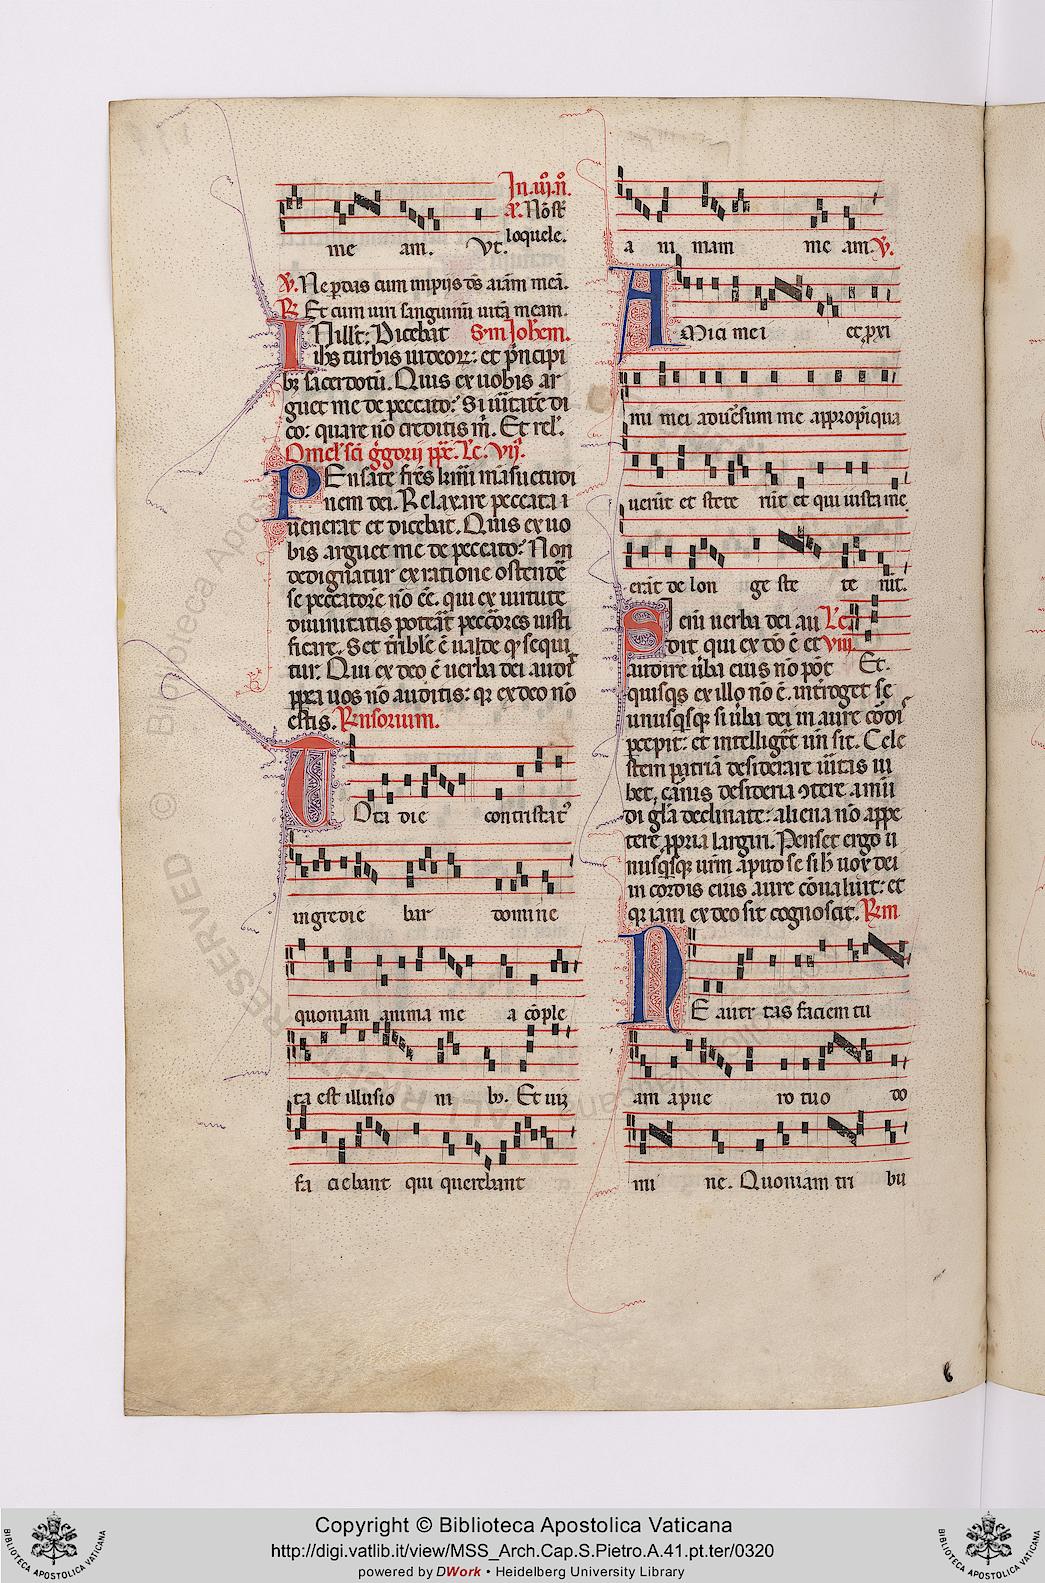 In .iij. n̄.
a. Nō st̄
loquele.
me am. Vt.
℣. Ne ꝑdas cum impijs dē aīam meā.
℟. Et cum uiri sanguinū uitā meam.
In illt̄: Dicebat Sm̄ Joħem.
ih̄s turbis iudeoꝝ: et p̄ncipi
bꝫ sacerdotū. Quis ex uobis ar
guet me de peccato? Si uītatē di
co: quare nō creditis m̄. Et rel̄.
Omel̄ sc̄i g̓gorij pp̄e. Lc̄. vij.
PEnsate fr̄es kmi mansuetudi
nem dei. Relaxare peccata i
uenerat et dicebat. Quis ex uo
bis arguet me de peccato? Non
dedignatur ex ratione ostendē
se peccatorē nō eē. qui ex uirtute
diuinitatis poterāt peccōres iusti
ficare. Set tīblē ē ualde qͥ sequi
tur. Qui ex deo ē uerba dei audit
ꝓpea uos nō auditis: qꝛ ex deo nō
estis. ℟nsorium.
TOta die contristatꝰ
ingredie bar domine
quoniam anima me a cōple
ta est illusio ni bꝫ. Et uiꝫ
fa ciebant qui querebant
a ni mam me am. ℣.
AMici mei et ꝓxi
mi mei aduersum me appropīqua
uerūt et stete rūt et qui iusta me
erāt de lon ge ste te rūt.
Seiū uerba dei au Lc̄.
dit qui ex dō ē et viij.
audire ūba eius nō pōt Et.
quisqꝫ ex illo nō ē. introget se
unusqꝫqꝫ si ūba dei in aure cōdī
ꝑcepit: et intelliget un̄ sit. Cele
stem patriā desiderare uītas iu
bet, cānis desideria ↄtere a mn̄
di gl̄a declinare: aliena nō appe
tere ꝓpria largiri. Penset ergo u
nusqꝫqꝫ ur̄m apud se si ħ uox dei
in cordis eius aure cōualuit: et
qꝛ iam ex deo sit cognoscit. ℟m
NE auer tas faciem tu
am apue ro tuo do
mi ne. Quoniam tri bu
6
Copyright © Biblioteca Apostolica Vaticana
http://digi.vatlib.it/view/MSS_Arch.Cap.S.Pietro.A.41.pt.ter/0320
powered by DWork • Heidelberg University Library